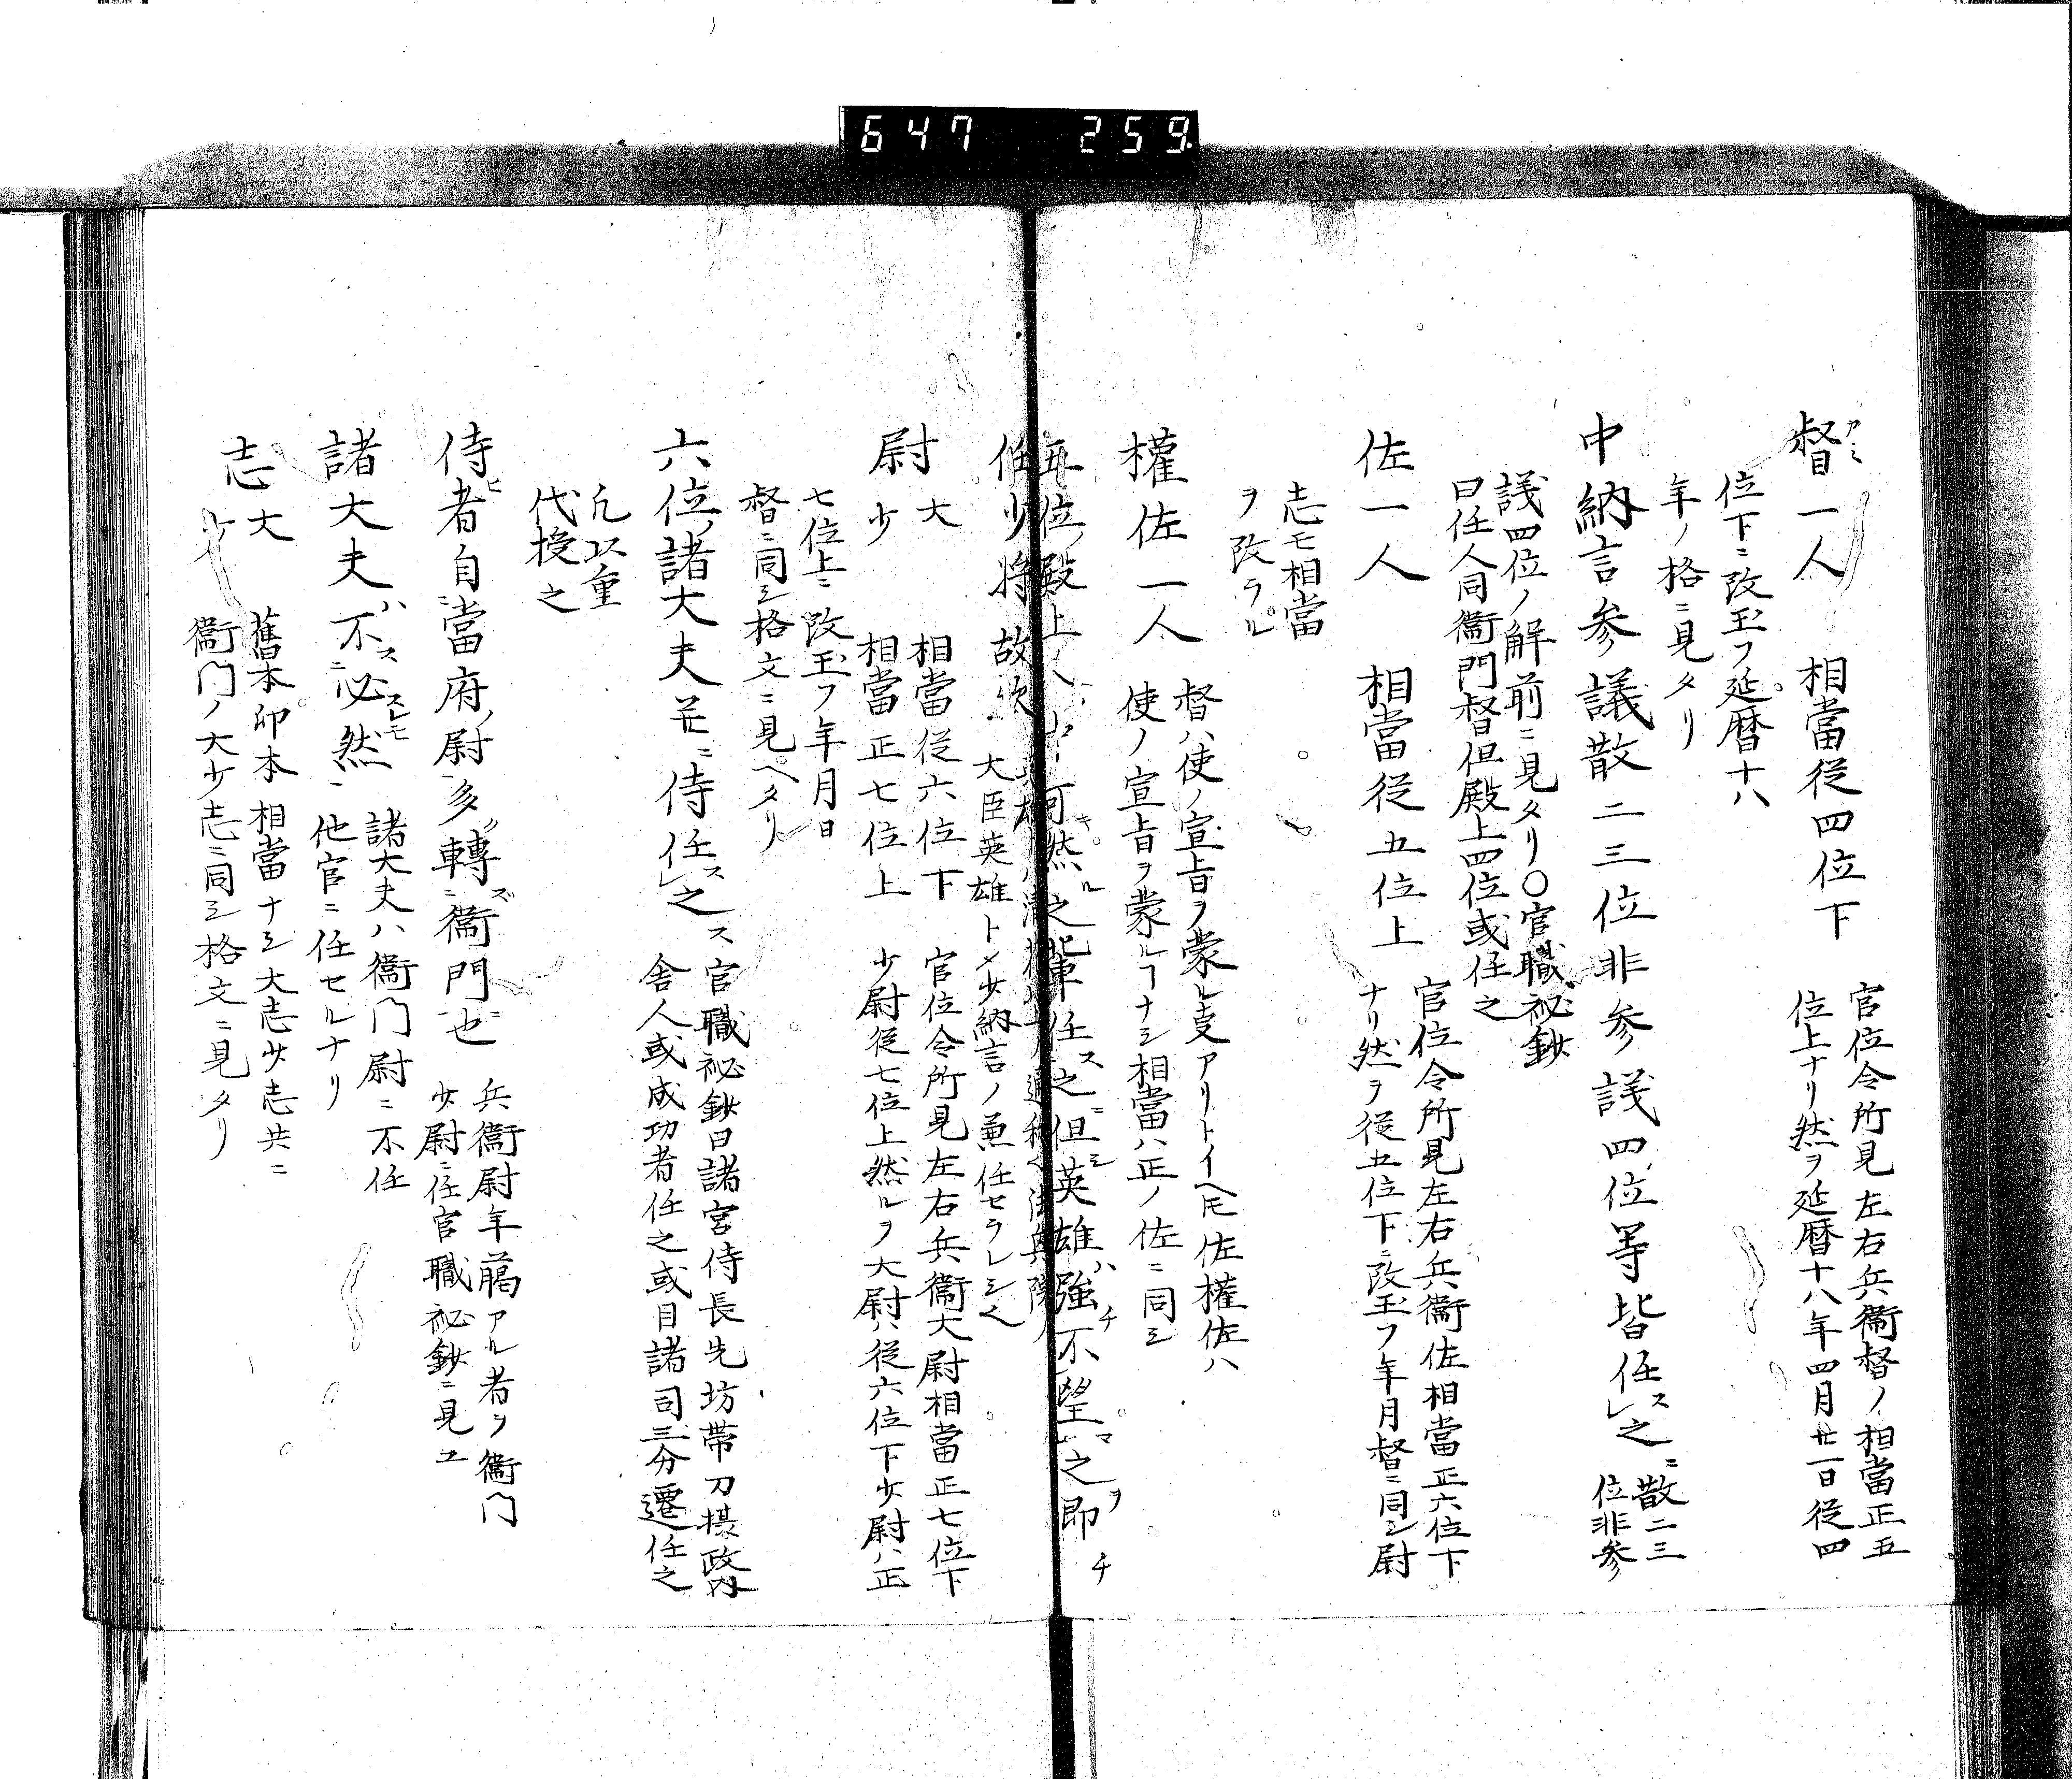 647 259
督一人 相當從四位下 官位令所見左右兵衞督ノ相當正五
位上ナリ然ヲ延暦十八年四月廿一日從四
位下ニ改玉フ延暦十八
年ノ格ニ見タリ
中納言参議散二三位非参議四位等皆任之 散二三
位非参
議四位ノ解前ニ見タリ○官職秘鈔
曰任人同衞門督但殿上四位或任之
佐一人 相當從五位上 官位令所見左右兵衞佐相當正六位下
ナリ然ヲ從五位下ニ改玉フ年月督ニ同シ尉
志モ相當
ヲ改ラル
權佐一人 督ハ使ノ宣旨ヲ蒙ル支アリトイヘ𪜈佐權佐ハ
使ノ宣旨ヲ蒙ルヿナシ相當ハ正ノ佐ニ同シ
五位殿上人 可然之輩任之但英雄強不望之即
任少将故歟
大臣英雄トメ少納言ノ兼任セラレシ
尉大 相當從六位下 官位令所見左右兵衞大尉相當正七位下
少 相當正七位上 少尉從七位上然ルヲ大尉ハ從六位下少尉ハ正
七位上ニ改玉フ年月日
督ニ同シ格文ニ見ヘタリ
六位諸大夫並侍任之 官職秘鈔曰諸宮侍長先坊帯刀摂政内
舎人或成功者任之或自諸司三分遷任之
凡以重
代授之
侍者自當府尉多轉衞門也 兵衞尉年﨟アル者ヲ衞門
少尉ニ任官職秘鈔ニ見ユ
諸大夫不必然 諸大夫ハ衞門尉ニ不任
他官ニ任セルナリ
志大 舊本印本相當ナシ大志少志共ニ
少 衞門ノ大少志ニ同シ格文ニ見タリ